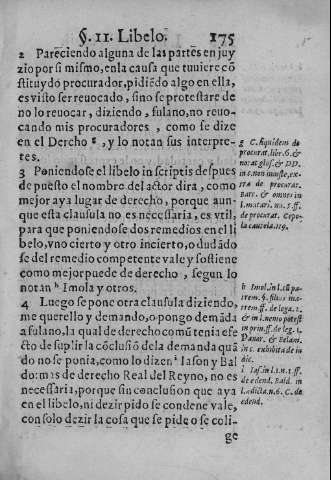 §. 11. Libelo. 175
2 Pareciendo alguna de las partes en juy
zio por si mismo, enla causa que tuuiere cō
stituydo procurador, pidiēdo algo en ella,
es visto ser reuocado, sino se protestare de
no lo reuocar, diziendo, fulano, no reuo-
cando mis procuradores, como se dize
en el Derecho g, y lo notan sus interpre-
tes.
3 Poniendose el libelo in scriptis despues
de puesto el nombre del actor dira, como
mejor aya lugar de derecho, porque aun-
que esta clausula no es necessaria, es vtil,
para que poniendose dos remedios en el li
belo, vno cierto y otro incierto, o dudādo
se del remedio competente vale y sostiene
como mejor puede de derecho, segun lo
notan h Imola y otros.
4 Luego se pone otra clausula diziendo,
me querello y demando, o pongo demāda
a fulano, la qual de derecho comū tenia efe
cto de suplir la cōclusiō dela demanda quā
do no se ponia, como lo dizen i Iason y Bal
do: mas de derecho Real del Reyno, no es
necessaria, porque sin conclusion que aya
en el libelo, ni dezir pido se condene vale,
con solo dezir la cosa que se pide o se coli-
ge
g C. siquidem de
procurat. libr. 6. &
notat glos. & DD.
in c. non iniuste, ex-
tra de procurat.
Bart. & omnes in
l. maturi. nu. 5. ff.
de procurat. Cepo-
la cautela. 119.
h Imol. in l. cū pa-
trem. §. filius ma-
trem. ff. de lega. 2.
& in l. nemo potest
in prin. ff. de leg. 1.
Panor. & Belam.
in c. exhibita de iu
dic.
i Ias. in l. 1. n. 1. ff.
de edend. Bald. in
l. edicta. n. 6. C. de
edend.